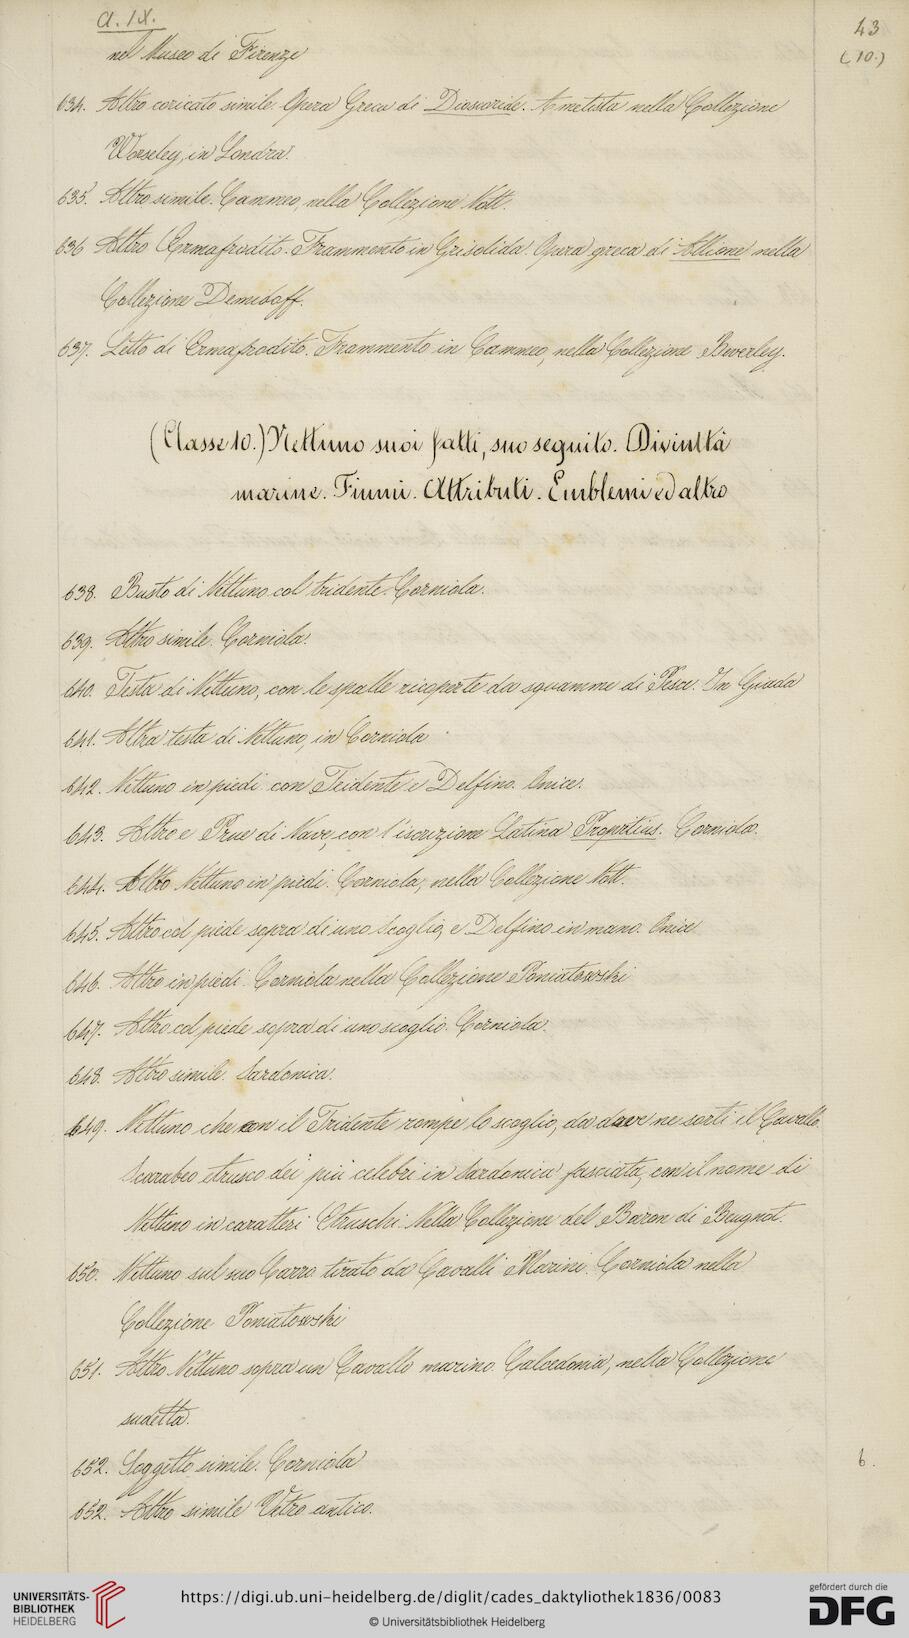 a. IX.
43
(10.)
nel Museo di Firenze
634. Altro coricato simile. Opera Greca di Dioscoride. Ametista nella Collezione
Worseley, in Londra.
635. Altro simile. Cammeo, nella Collezione Nott.
636 Altro Ermafrodito. Frammento in Grisolida. Opera greca di Allione nella
Collezione Demidoff.
637. Letto di Ermafrodito. Frammento in Cammeo, nella Collezione Beverley.
(Classe 10.) Nettuno suoi fatti, suo seguito. Divinttà
marine. Fiumi. Attributi. Emblemi ed altro
638. Busto di Nettuno col tridente. Corniola.
639. Altro simile. Corniola.
640. Testa di Nettuno, con le spalle ricoperte da squamme di Pesce. In Giada
641. Altra testa di Nettuno, in Corniola
642. Nettuno in piedi con Tridente e Delfino. Onice.
643. Altro e Prue di Nave, con l'iscrizione Latina Propertius. Corniola.
644. Altro Nettuno in piedi. Corniola, nella Collezione Nott.
645. Altro col piede sopra di uno Scoglio, e Delfino in mano. Onice
646. Altro in piedi. Corniola nella Collezione Poniatowski
647. Altro col piede sopra di uno scoglio. Corniola.
648. Altro simile. Sardonica.
649. Nettuno che con il Tridente rompe lo scoglio, da dove ne sortì il Cavallo.
Scarabeo etrusco dei più celebri in Sardonica fasciata, con il nome di
Nettuno in caratteri Etruschi. Nella Collezione del Baron di Beugnot.
650. Nettuno sul suo Carro tirato da Cavalli Marini. Corniola nella
Collezione Poniatowski
651. Altro Nettuno sopra un Cavallo marino. Calcedonia, nella Collezione
sudetta.
652. Soggetto simile. Corniola
6.
652. Altro simile Vetro antico.
UNIVERSITÄTS-
BIBLIOTHEK
HEIDELBERG
https://digi.ub.uni-heidelberg.de/diglit/cades_daktyliothek1836/0083
© Universitätsbibliothek Heidelberg
gefördert durch die
DFG